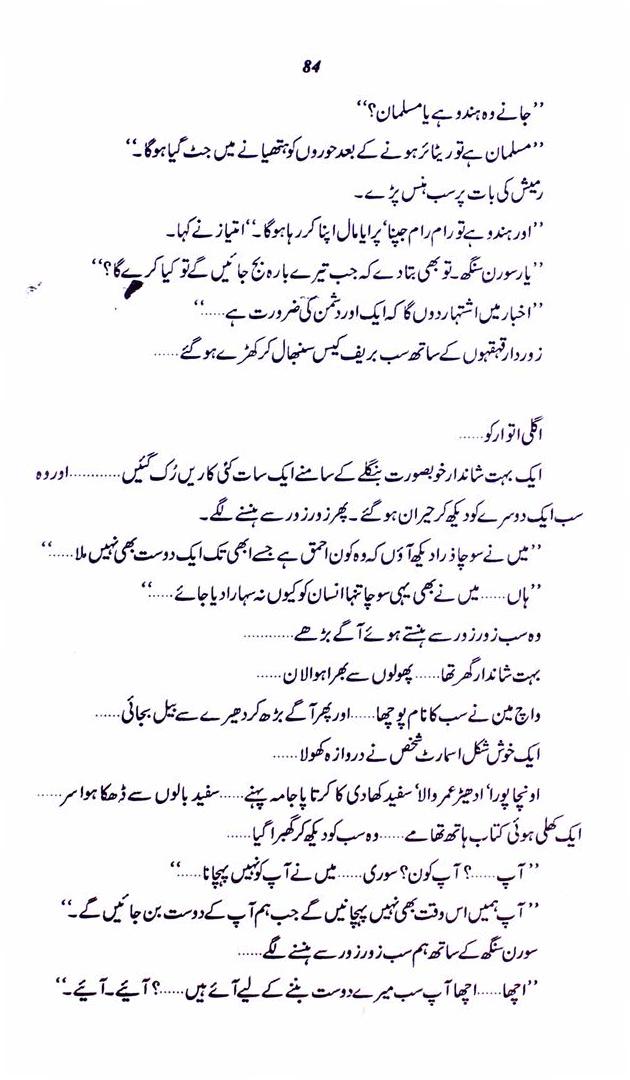 84
’’جانے وہ ہندو ہے یا مسلمان؟‘‘
’’مسلمان ہے تو ریٹائر ہونے کے بعد حوروں کو ہتھیانے میں جٹ گیا ہوگا۔‘‘
رمیش کی بات پر سب ہنس پڑے۔
’’اور ہندو ہے تو رام رام جپنا‘ پرایا مال اپنا کر رہا ہوگا۔‘‘ امتیاز نے کہا۔
’’یار سورن سنگھ۔ تو بھی بتا دے کہ جب تیرے بارہ بج جائیں گے تو کیا کرے گا؟‘‘
’’اخبار میں اشتہار دوں گا کہ ایک اور دشمن کی ضرورت ہے......‘‘
زوردار قہقہوں کے ساتھ سب بریف کیس سنبھال کر کھڑے ہو گئے......
اگلی اتوار کو......
ایک بہت شاندار خوبصورت بنگلے کے سامنے ایک سات کئی کاریں رُک گئیں............اور وہ
سب ایک دوسرے کو دیکھ کر حیران ہو گئے۔ پھر زور زور سے ہنسنے لگے۔
’’میں نے سوچا ذرا دیکھ آؤں کہ وہ کون احمق ہے جسے ابھی تک ایک دوست بھی نہیں ملا......‘‘
’’ہاں......میں نے بھی یہی سوچا تنہا انسان کو کیوں نہ سہارا دیا جائے......‘‘
وہ سب زور زور سے ہنستے ہوئے آگے بڑھے............
بہت شاندار گھر تھا......پھولوں سے بھرا ہوا لان......
واچ مین نے سب کا نام پوچھا......اور پھر آگے بڑھ کر دھیرے سے بیل بجائی......
ایک خوش شکل اسمارٹ شخص نے دروازہ کھولا......
اونچا پورا‘ ادھیڑ عمر والا‘ سفید کھادی کا کرتا پاجامہ پہنے......سفید بالوں سے ڈھکا ہوا سر......
ایک کھلی ہوئی کتاب ہاتھ تھامے......وہ سب کو دیکھ کر گھبرا گیا......
’’آپ......؟ آپ کون؟ سوری......میں نے آپ کو نہیں پہچانا......‘‘
’’آپ ہمیں اس وقت بھی نہیں پہچانیں گے جب ہم آپ کے دوست بن جائیں گے۔‘‘
سورن سنگھ کے ساتھ ہم سب زور زور سے ہنسنے لگے......
’’اچھا......اچھا آپ سب میرے دوست بننے کے لیے آئے ہیں......؟ آئیے۔ آئیے۔‘‘